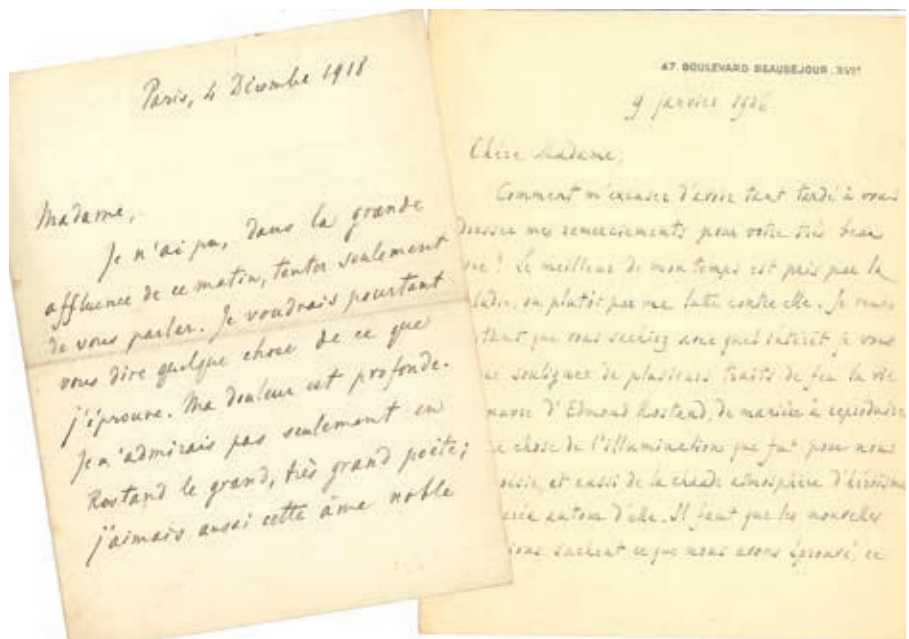 Paris, 4 Décembre 1918
Madame,
Je n'ai pu, dans la grande
affluence de ce matin, tenter seulement
de vous parler. Je voudrais pourtant
vous dire quelque chose de ce que
j'éprouve. Ma douleur est profonde.
Je n'admirais pas seulement en
Rostand le grand, très grand poète;
j'aimais aussi cette âme noble
47. BOULEVARD BEAUSÉJOUR. XVIᵉ
9 janvier 1926
Chère Madame,
Comment m'excuser d'avoir tant tardé à vous
dresser mes remerciements pour votre très beau
Le meilleur de mon temps est pris par la
ladie, ou plutôt par ma lutte contre elle. Je
tant que vous sachiez avec quel intérêt je vous
souligner de plusieurs traits de feu la vie
d'Edmond Rostand, de manière à reproduire
chose de l'illumination que fut pour nous
et aussi de la chaude atmosphère d'héroïsme
autour d'elle. Il faut que les nouvelles
sachent ce que nous avons éprouvé, ce